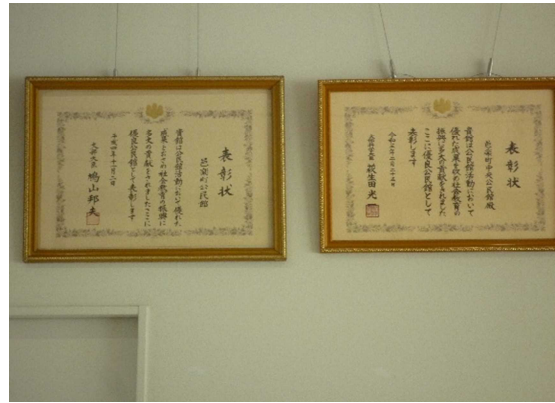 表彰状
邑楽町公民館
貴館は公民館活動において優れた
成果をおさめ社会教育の振興に
多大の貢献をされましたここに
優良公民館として表彰します
平成四年十一月
文部大臣 鳩山邦夫
表彰状
邑楽町中央公民館殿
貴館は公民館活動において
優れた成果を収め社会教育の
振興に多大の貢献をされました
ここに優良公民館として
表彰します
令和三年二月二十五日
文部科学大臣 萩生田光一